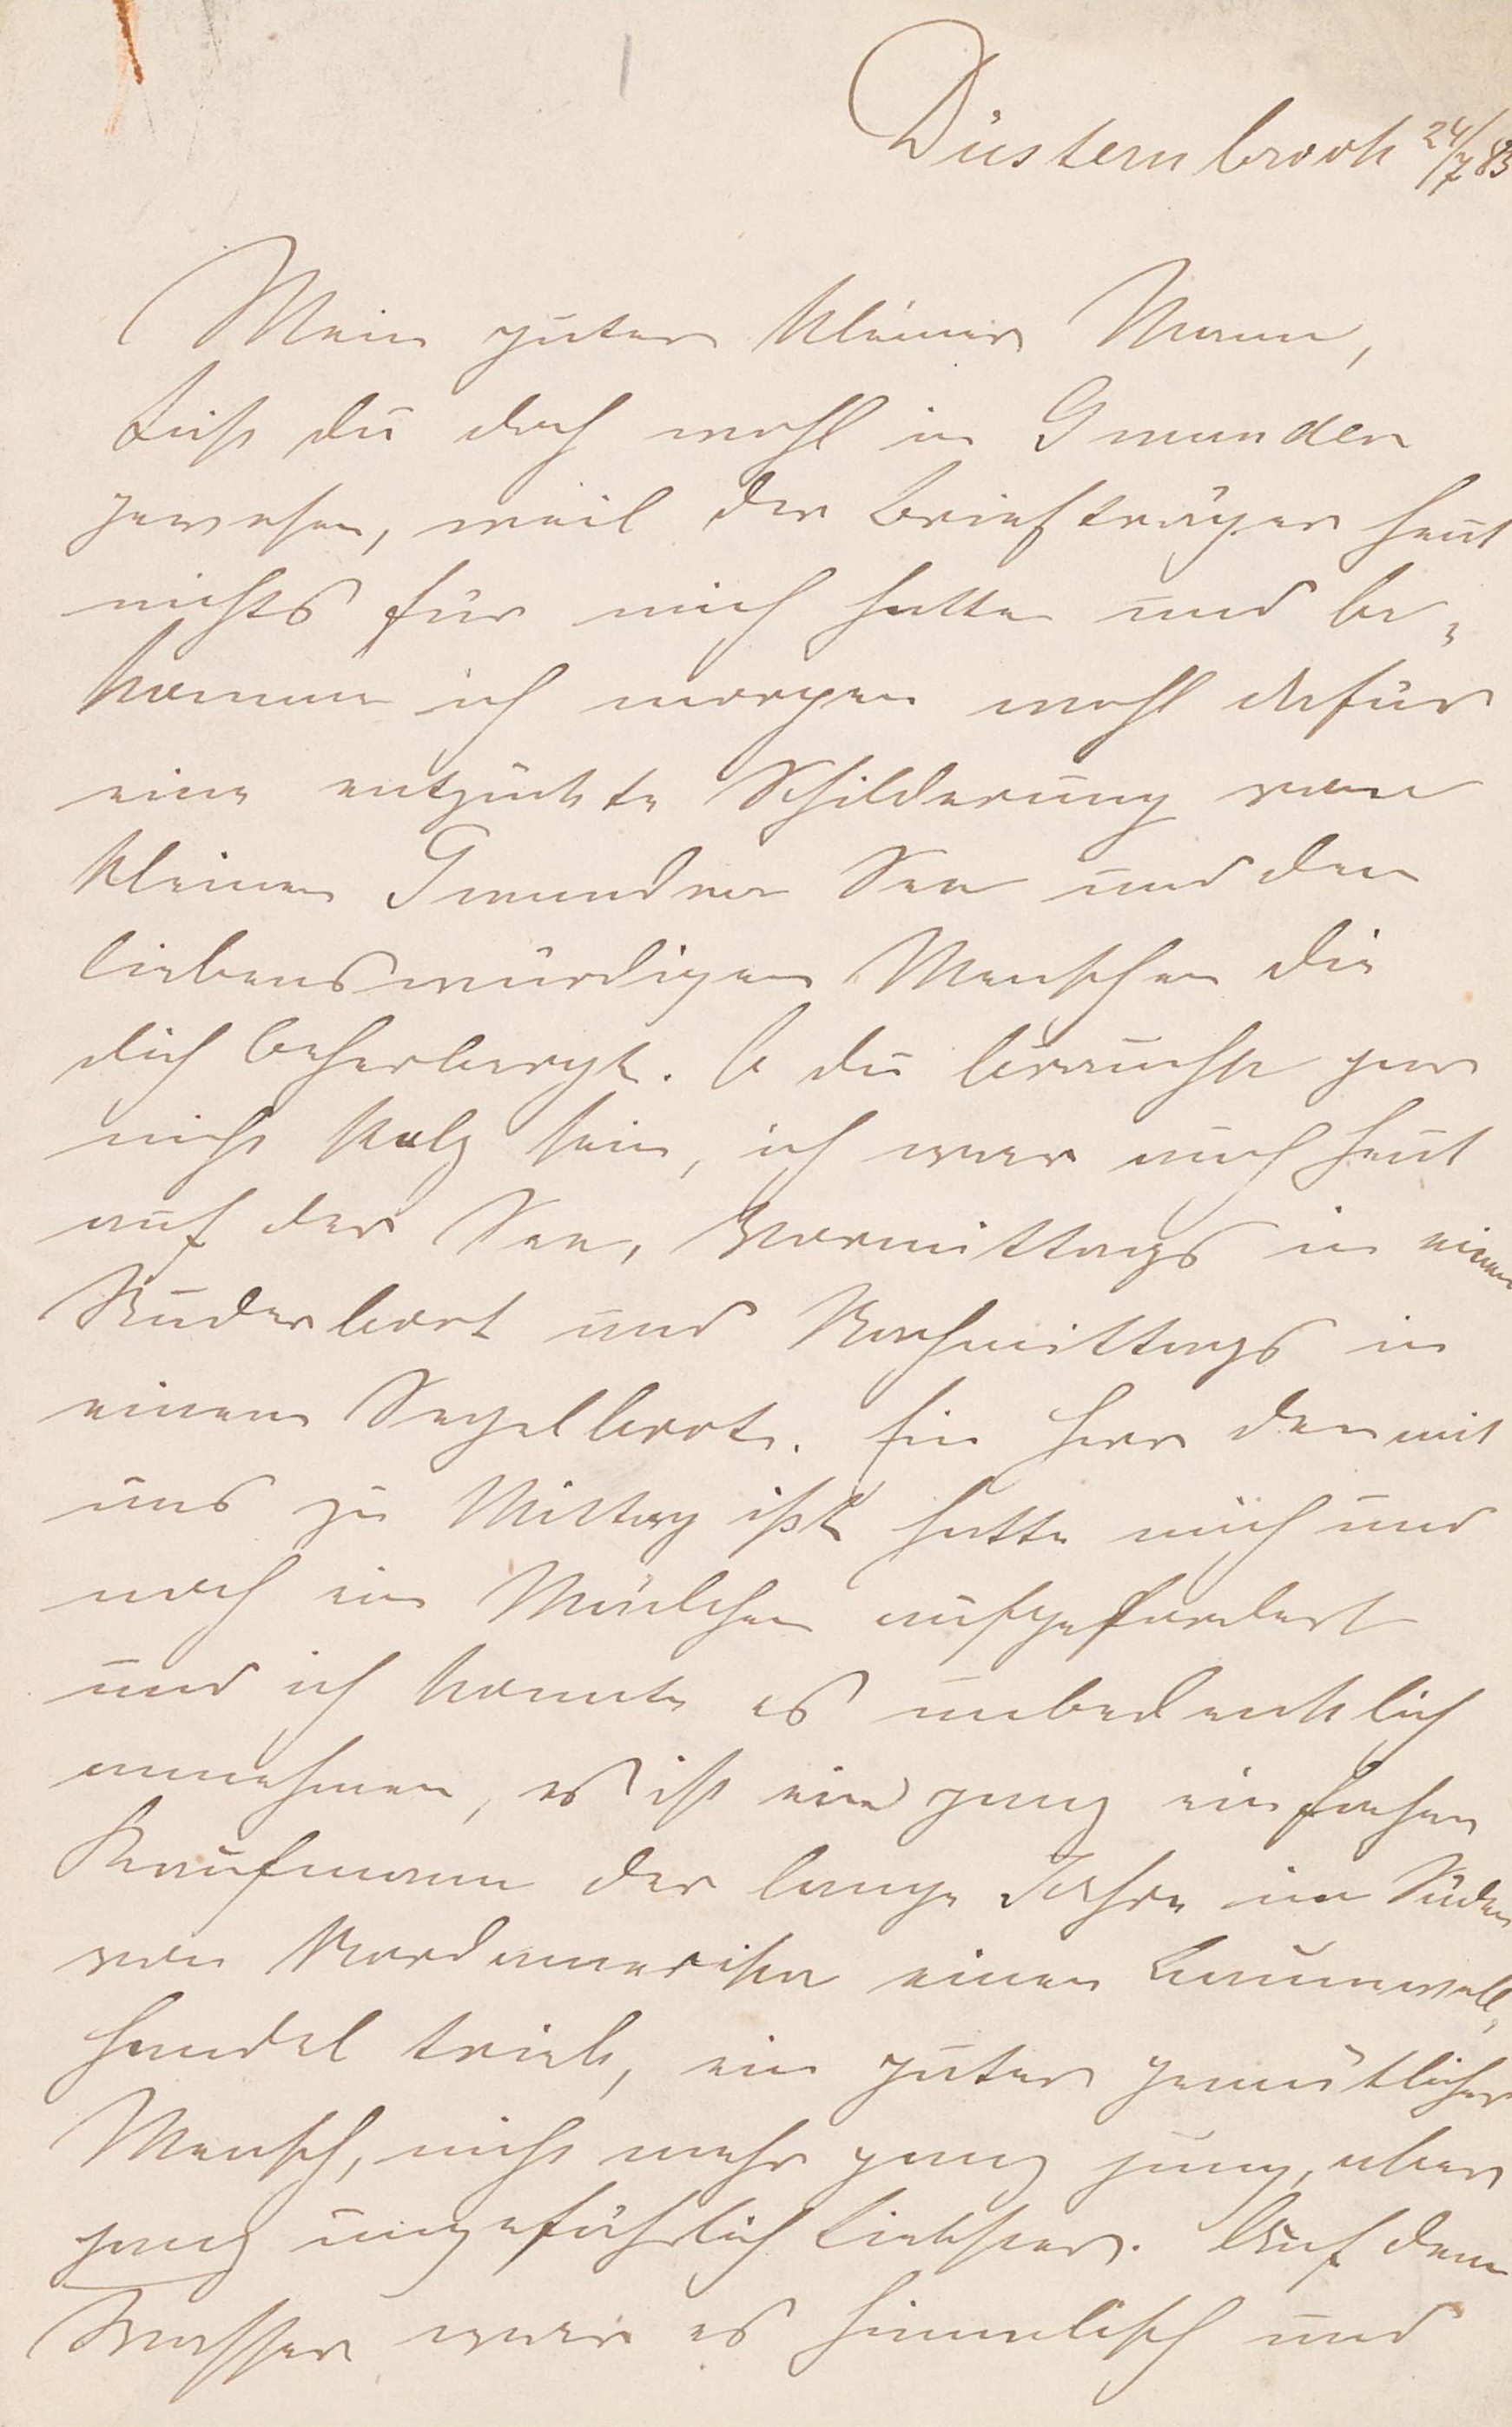 Düsternbrook 24/7 83
Mein guter kleiner Mann,
bist du doch wohl in Gmunden
gewesen, weil der Briefträger heut
nichts für mich hatte und be-
komme ich morgen wohl dafür
eine entzückte Schilderung vom
kleinen Gmundner See und den
liebenswürdigen Menschen die
dich beherbergt. O du brauchst gar
nicht stolz sein, ich war auch heut
auf der See, Vormittags in einem
Ruderboot und Nachmittags in
einem Segelboot. Ein Herr der mit
uns zu Mittag ißt hatte mich und
noch ein Mädchen aufgefordert
und ich konnte es unbedenklich
annehmen, es ist ein ganz einfacher
Kaufmann der lange Jahre im Süden
von Nordamerika einen Baumwoll-
handel trieb, ein guter gemütlicher
Mensch, nicht mehr ganz jung, aber
ganz ungefährlich Liebster. Auf dem
Wasser war es himmlisch und